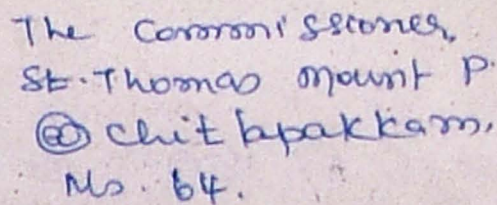 The Commissioner,
St. Thomas Mount P.
@ Chitlapakkam,
Ms. 64.